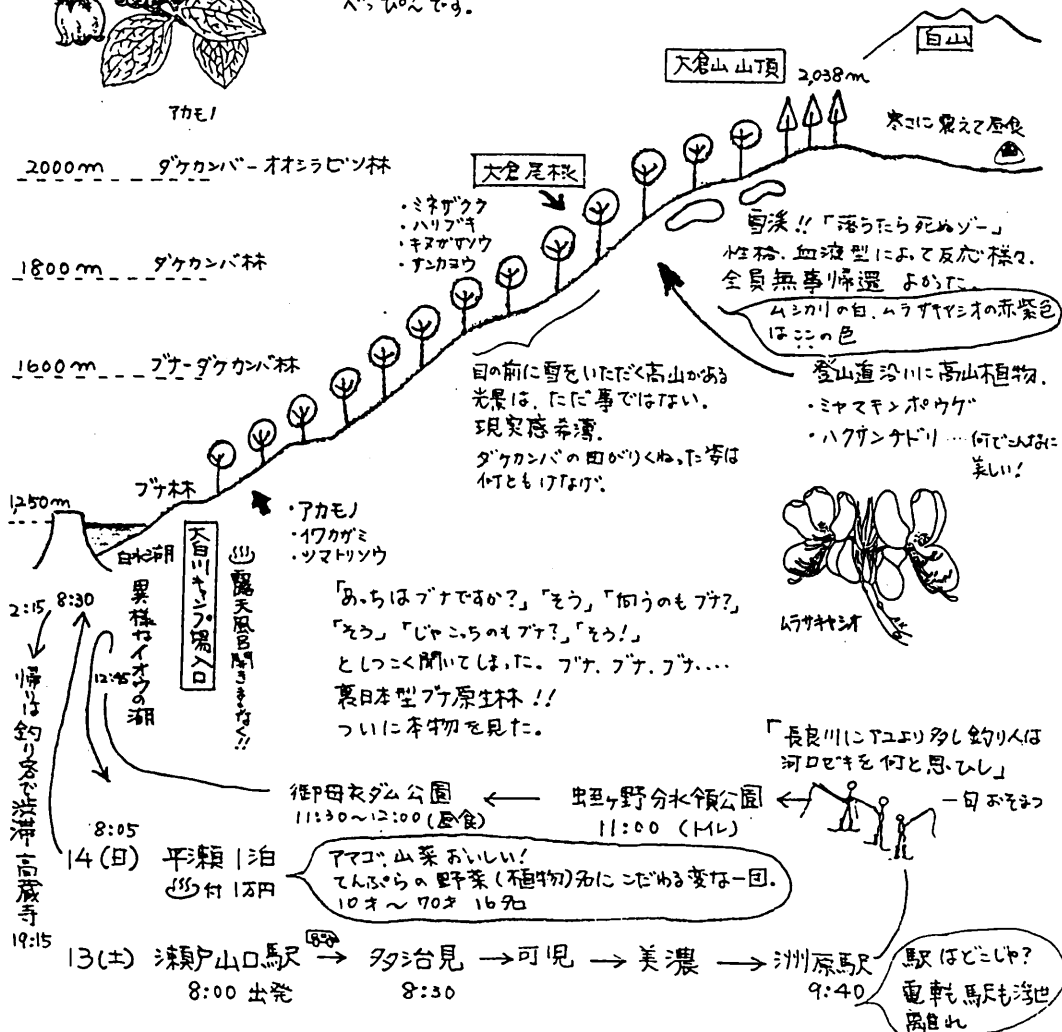 べっぴんです。
アカモノ
白山
大倉山山頂
2,038m
寒さに震えて昼食
2000m ダケカンバーオオシラビソ林
大倉尾根
・ミネザクラ
・ハリブキ
・キヌガサソウ
・サンカヨウ
1800m ダケカンバ林
雪渓!!「落ちたら死ぬゾー」
性格、血液型によって反応様々。
全員無事帰還 よかった。
ムシカリの白、ムラサキヤシオの赤紫色
はここの色
1600m ブナーダケカンバ林
目の前に雪をいただく高山がある
光景は、ただ事ではない。
現実感希薄。
ダケカンバの曲がりくねった姿は
何ともけなげ。
登山道沿いに高山植物。
・ミヤマキンポウゲ
・ハクサンチドリ…何でこんなに
美しい!
ブナ林
1,250m
白水湖
大白川キャンプ場入口
露天風呂聞きまなく!!
異様なイオウの湖
・アカモノ
・イワカガミ
・ツマトリソウ
ムラサキヤシオ
「あっちはブナですか?」「そう」「向うのもブナ?」
「そう」「じゃこっちのもブナ?」「そう!」
としつこく聞いてしまった。ブナ、ブナ、ブナ‥‥
裏日本型ブナ原生林!!
ついに本物を見た。
2:15
8:30
12:45
帰りは釣り客で渋滞 高蔵寺
19:15
「長良川にアユより多し釣り人は
河口ゼキを何と思ひし」
一句おそまつ
御母衣ダム公園
11:30〜12:00(昼食)
蛭ヶ野分水嶺公園
11:00 (トイレ)
8:05
14(日) 平瀬1泊
付1万円
アマゴ、山菜おいしい!
てんぷらの野菜(植物)名にこだわる変な一団。
10才〜70才 16名
13(土) 瀬戸山口駅 → 多治見 → 可児 → 美濃 → 洲原駅
8:00 出発
8:30
9:40
駅はどこじゃ?
電車も駅も浮世
離れ